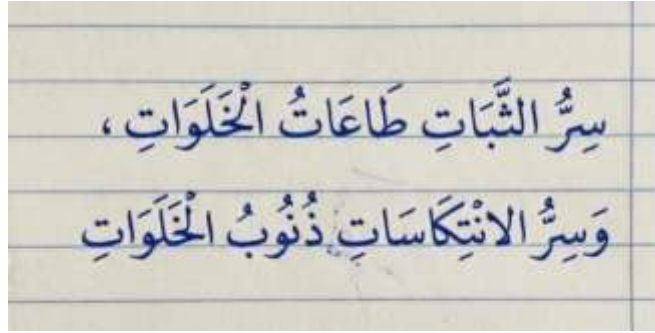 سِرُّ الثَّبَاتِ طَاعَاتُ الْخَلَوَاتِ ،
وَسِرُّ الانْتِكَاسَاتِ ذُنُوبُ الْخَلَوَاتِ